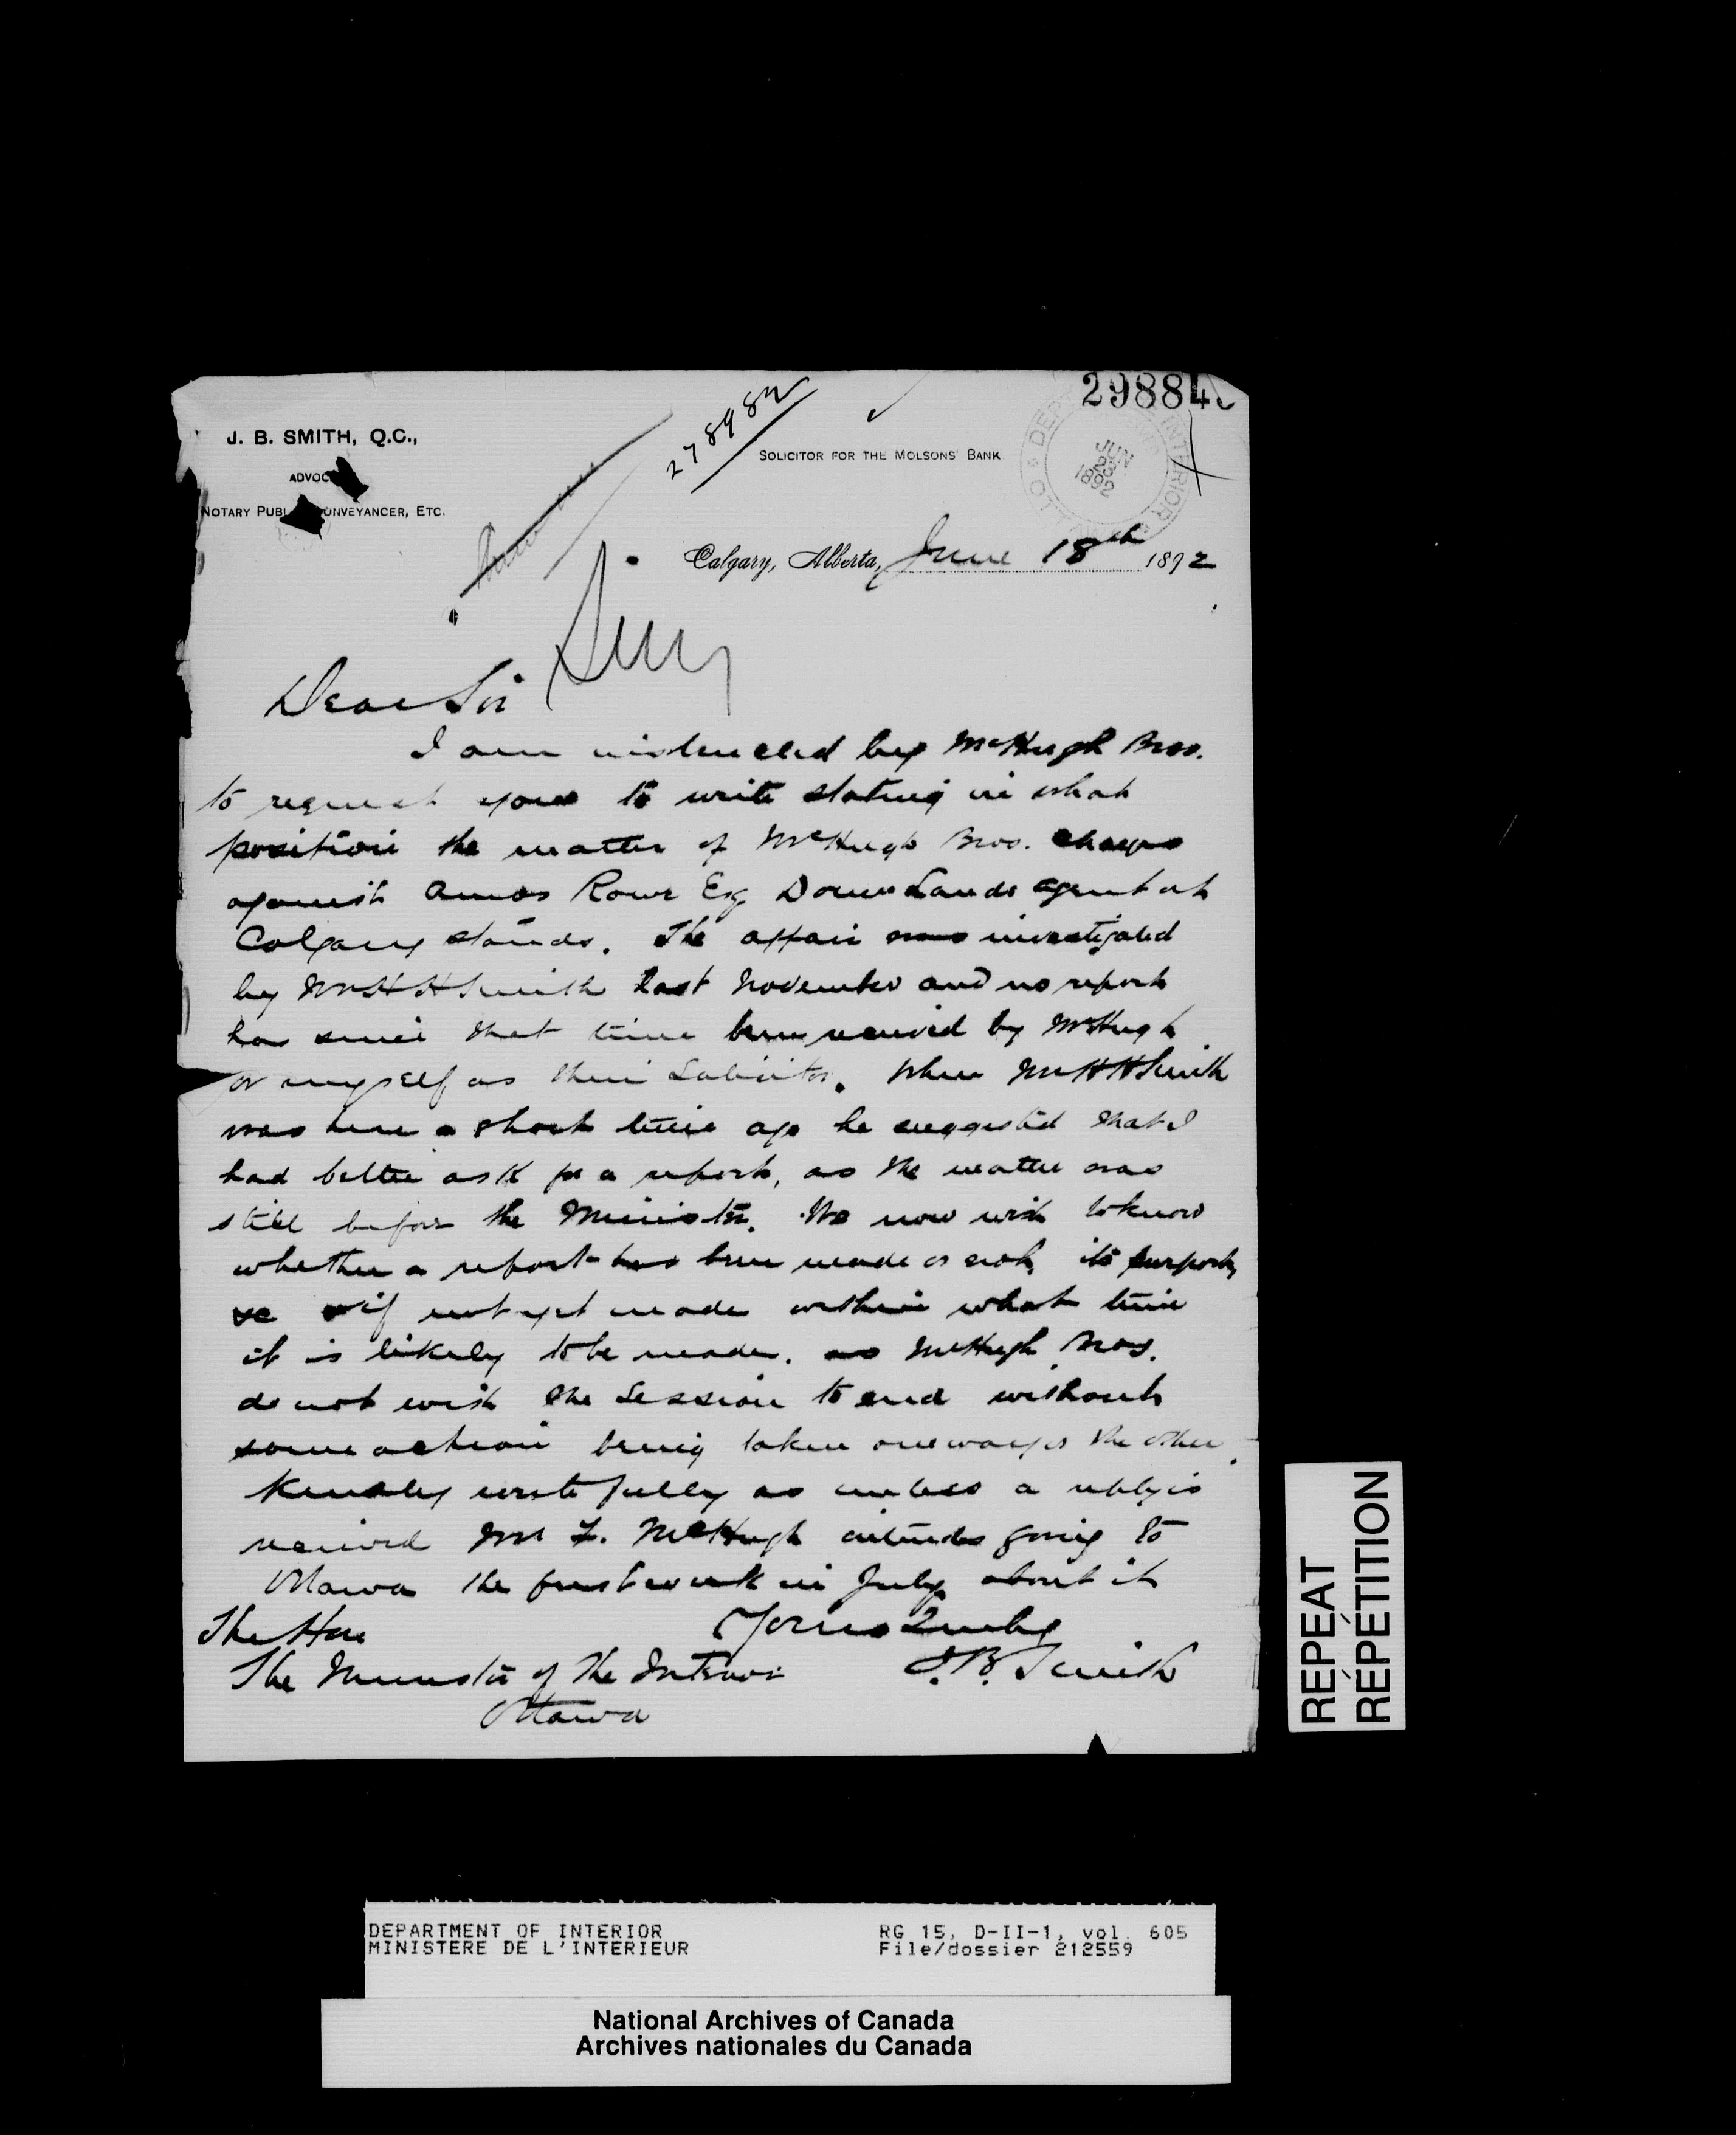 29884
278982
J. B. SMITH, Q.C.,
SOLICITOR FOR THE MOLSONS' BANK.
ADVOC
NOTARY PUBL CONVEYANCER, ETC.
DEPT INTERIOR
JUN
23
1892
Calgary, Alberta, June 18th 1892
Dear Sir
I am instructed by McHugh Bros.
to request you to write stating in what
position the matter of McHugh Bros. charges
against Amos Rowe Esq Domn Lands agent at
Calgary stands. The affair was investigated
by Mr H H Smith last November and no report
has since that time been received by McHugh
or myself as their Solicitor. When Mr H H Smith
was here a short time ago he suggested that I
had better ask for a report, as the matter was
still before the Minister. We now wish to know
whether a report has been made or not, its purport,
if not yet made within what time
it is likely to be made. as McHugh Bros.
do not wish the Session to end without
some action being taken one way or the other.
Kindly write fully as unless a reply is
received Mr F. McHugh intends going to
Ottawa the first week in July about it
Yours Truly
J. B. Smith
The Hon
The Minister of the Interior
Ottawa
REPEAT
RÉPÉTITION
DEPARTMENT OF INTERIOR
MINISTERE DE L'INTERIEUR
RG 15, D-II-1, vol. 605
File/dossier 212559
National Archives of Canada
Archives nationales du Canada